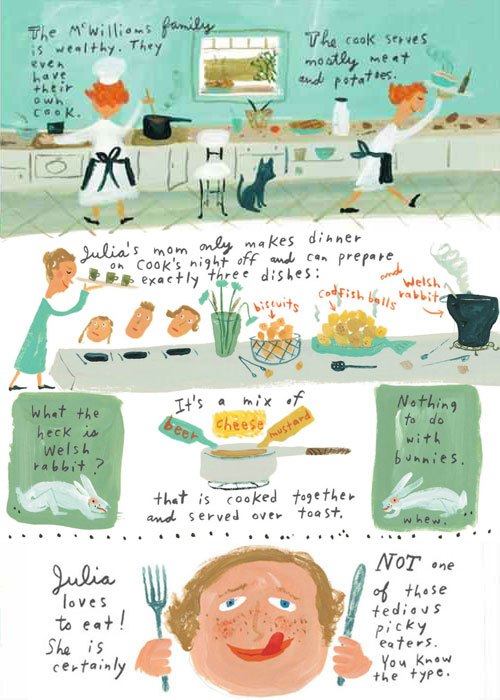 The McWilliams family
is wealthy. They
even
have
their
own
cook.
The cook serves
mostly meat
and potatoes.
Julia's mom only makes dinner
on cook's night off and can prepare
exactly three dishes:
biscuits
Codfish balls
and
Welsh
rabbit
What the
heck is
Welsh
rabbit?
It's a mix of
beer
cheese
mustard
that is cooked together
and served over toast.
Nothing
to do
with
bunnies.
whew.
Julia
loves
to eat!
She is
certainly
NOT one
of those
tedious
picky
eaters.
You know
the type.